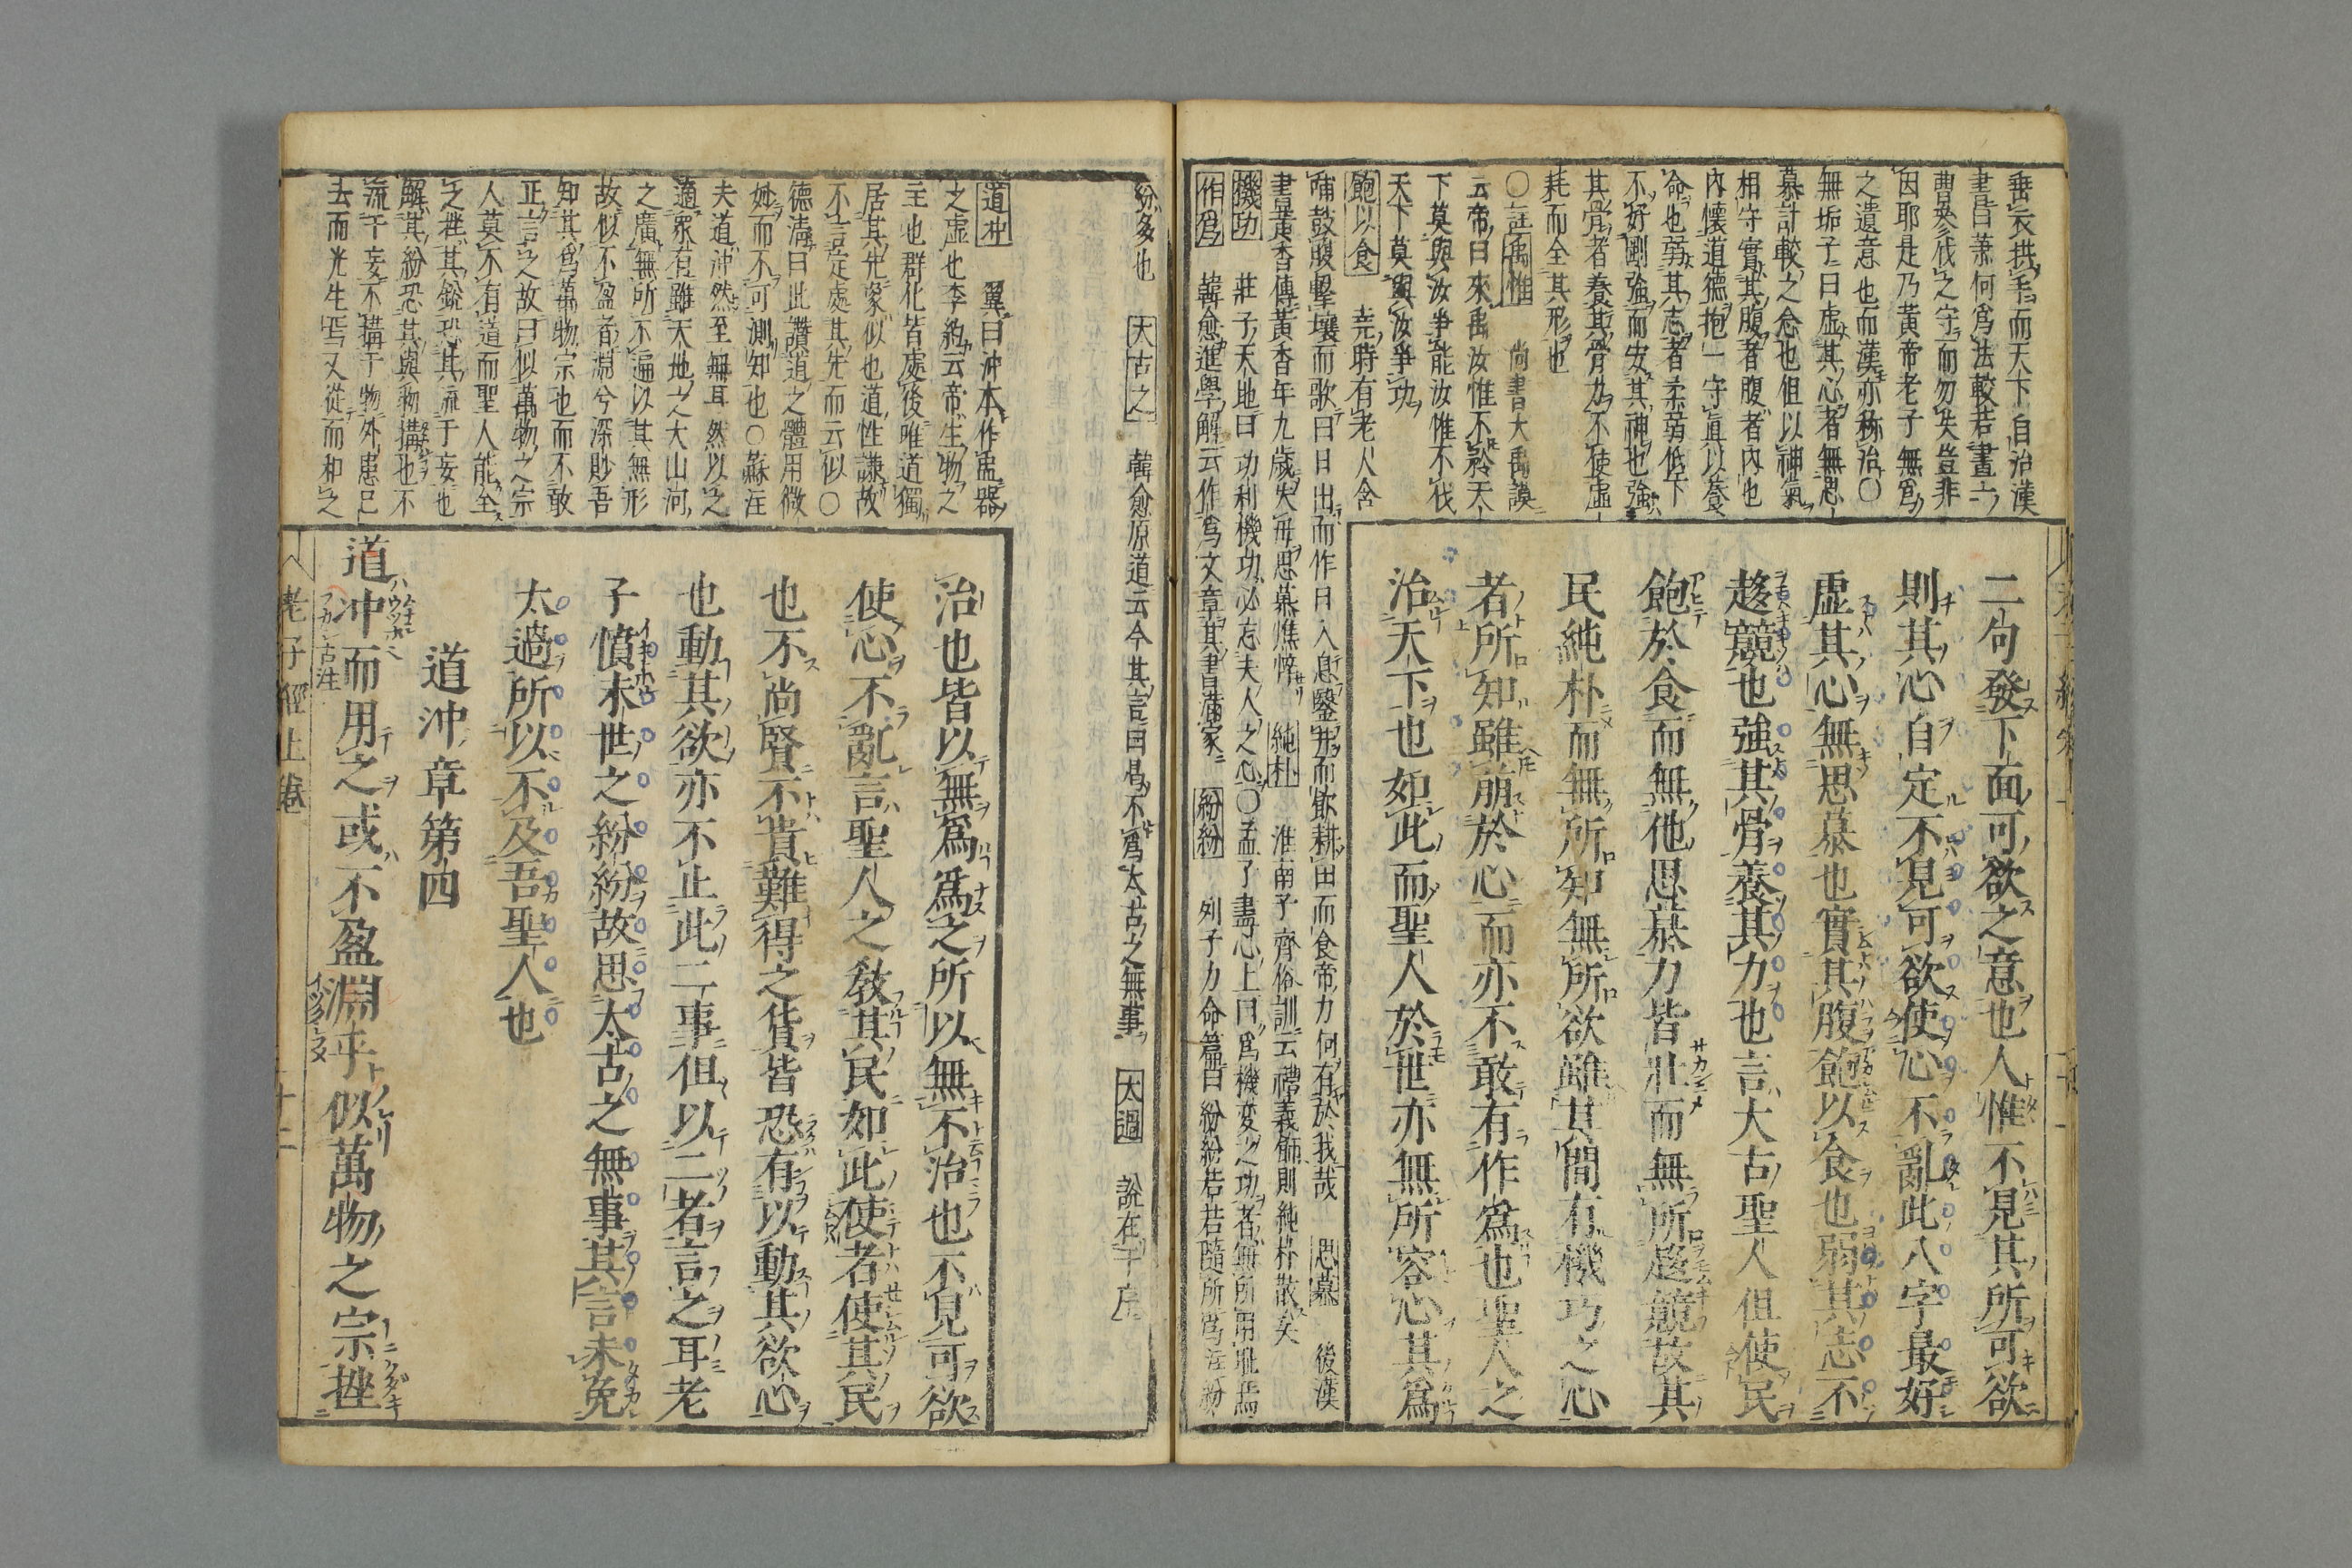 垂衣拱手而天下自治漢
書曰蕭何爲法較若畫一
曹參代之守而勿失豈非
因耶是乃黃帝老子無爲
之遺意也而漢亦称治〇
無垢子曰虚其心者無思
慕計較之念也但以神氣
相守實其腹者腹者內也
內懷道德抱一守眞以養
命也弱其志者柔弱低下
不好剛強而安其神也強
其骨者養其骨力不使虛
耗而全其形也
〇註禹惟 尚書大禹謨
云帝曰來禹汝惟不矜天
下莫與汝爭能汝惟不伐
天下莫與汝爭功
飽以食 堯時有老人含
哺鼓腹擊壤而歌曰日出而作日入息鑿井而飲耕田而食帝力何有於我哉 思慕 後漢
書黃香傳黃香年九歲失母思慕憔悴 純朴 淮南子齊俗訓云禮義飾則純朴散矣
機功 莊子天地曰功利機功必忘夫人之心〇孟子盡心上曰爲機変之功者無所用耻焉
作爲 韓愈進學解云作爲文章其書滿家 紛紛 列子力命篇曰紛紛若若隨所爲注紛
二句發下面可欲之意也人惟不見其所可欲
則其心自定不見可欲使心不亂此八字最好
虚其心無思慕也實其腹飽以食也弱其志不
趍競也強其骨養其力也言大古聖人但使民
飽於食而無他思慕力皆壯而無所趍競故其
民純朴而無所知無所欲雖其間有機巧之心
者所知雖萠於心而亦不敢有作爲也聖人之
治天下也如此而聖人於世亦無所容心其爲
紛多也 大古之 韓愈原道云今其言曰曷不爲太古之無事 太過 說在于序
道冲 翼曰冲本作盅器
之虛也李約云帝生物之
主也群化皆處後唯道獨
居其先象似也道性謙故
不言定處其先而云似〇
德淸曰此讚道之體用微
妙而不可測知也〇蘇注
夫道冲然至無耳然以之
適衆有雖天地之大山河
之廣無所不遍以其無形
故似不盈者淵兮深眇吾
知其爲萬物宗也而不敢
正言之故曰似萬物之宗
人莫不有道而聖人能全
之挫其銳恐其流于妄也
解其紛恐其與物搆也不
流于妄不搆于物外患已
去而光生焉又從而和之
治也皆以無爲爲之所以無不治也不見可欲
使心不亂言聖人之敎其民如此使者使其民
也不尚賢不貴難得之貨皆恐有以動其欲心
也動其欲亦不止此二事但以二者言之耳老
子憤末世之紛紛故思太古之無事其言未免
太過所以不及吾聖人也
道冲章第四
道冲而用之或不盈淵乎似萬物之宗挫
老子經上卷
十二